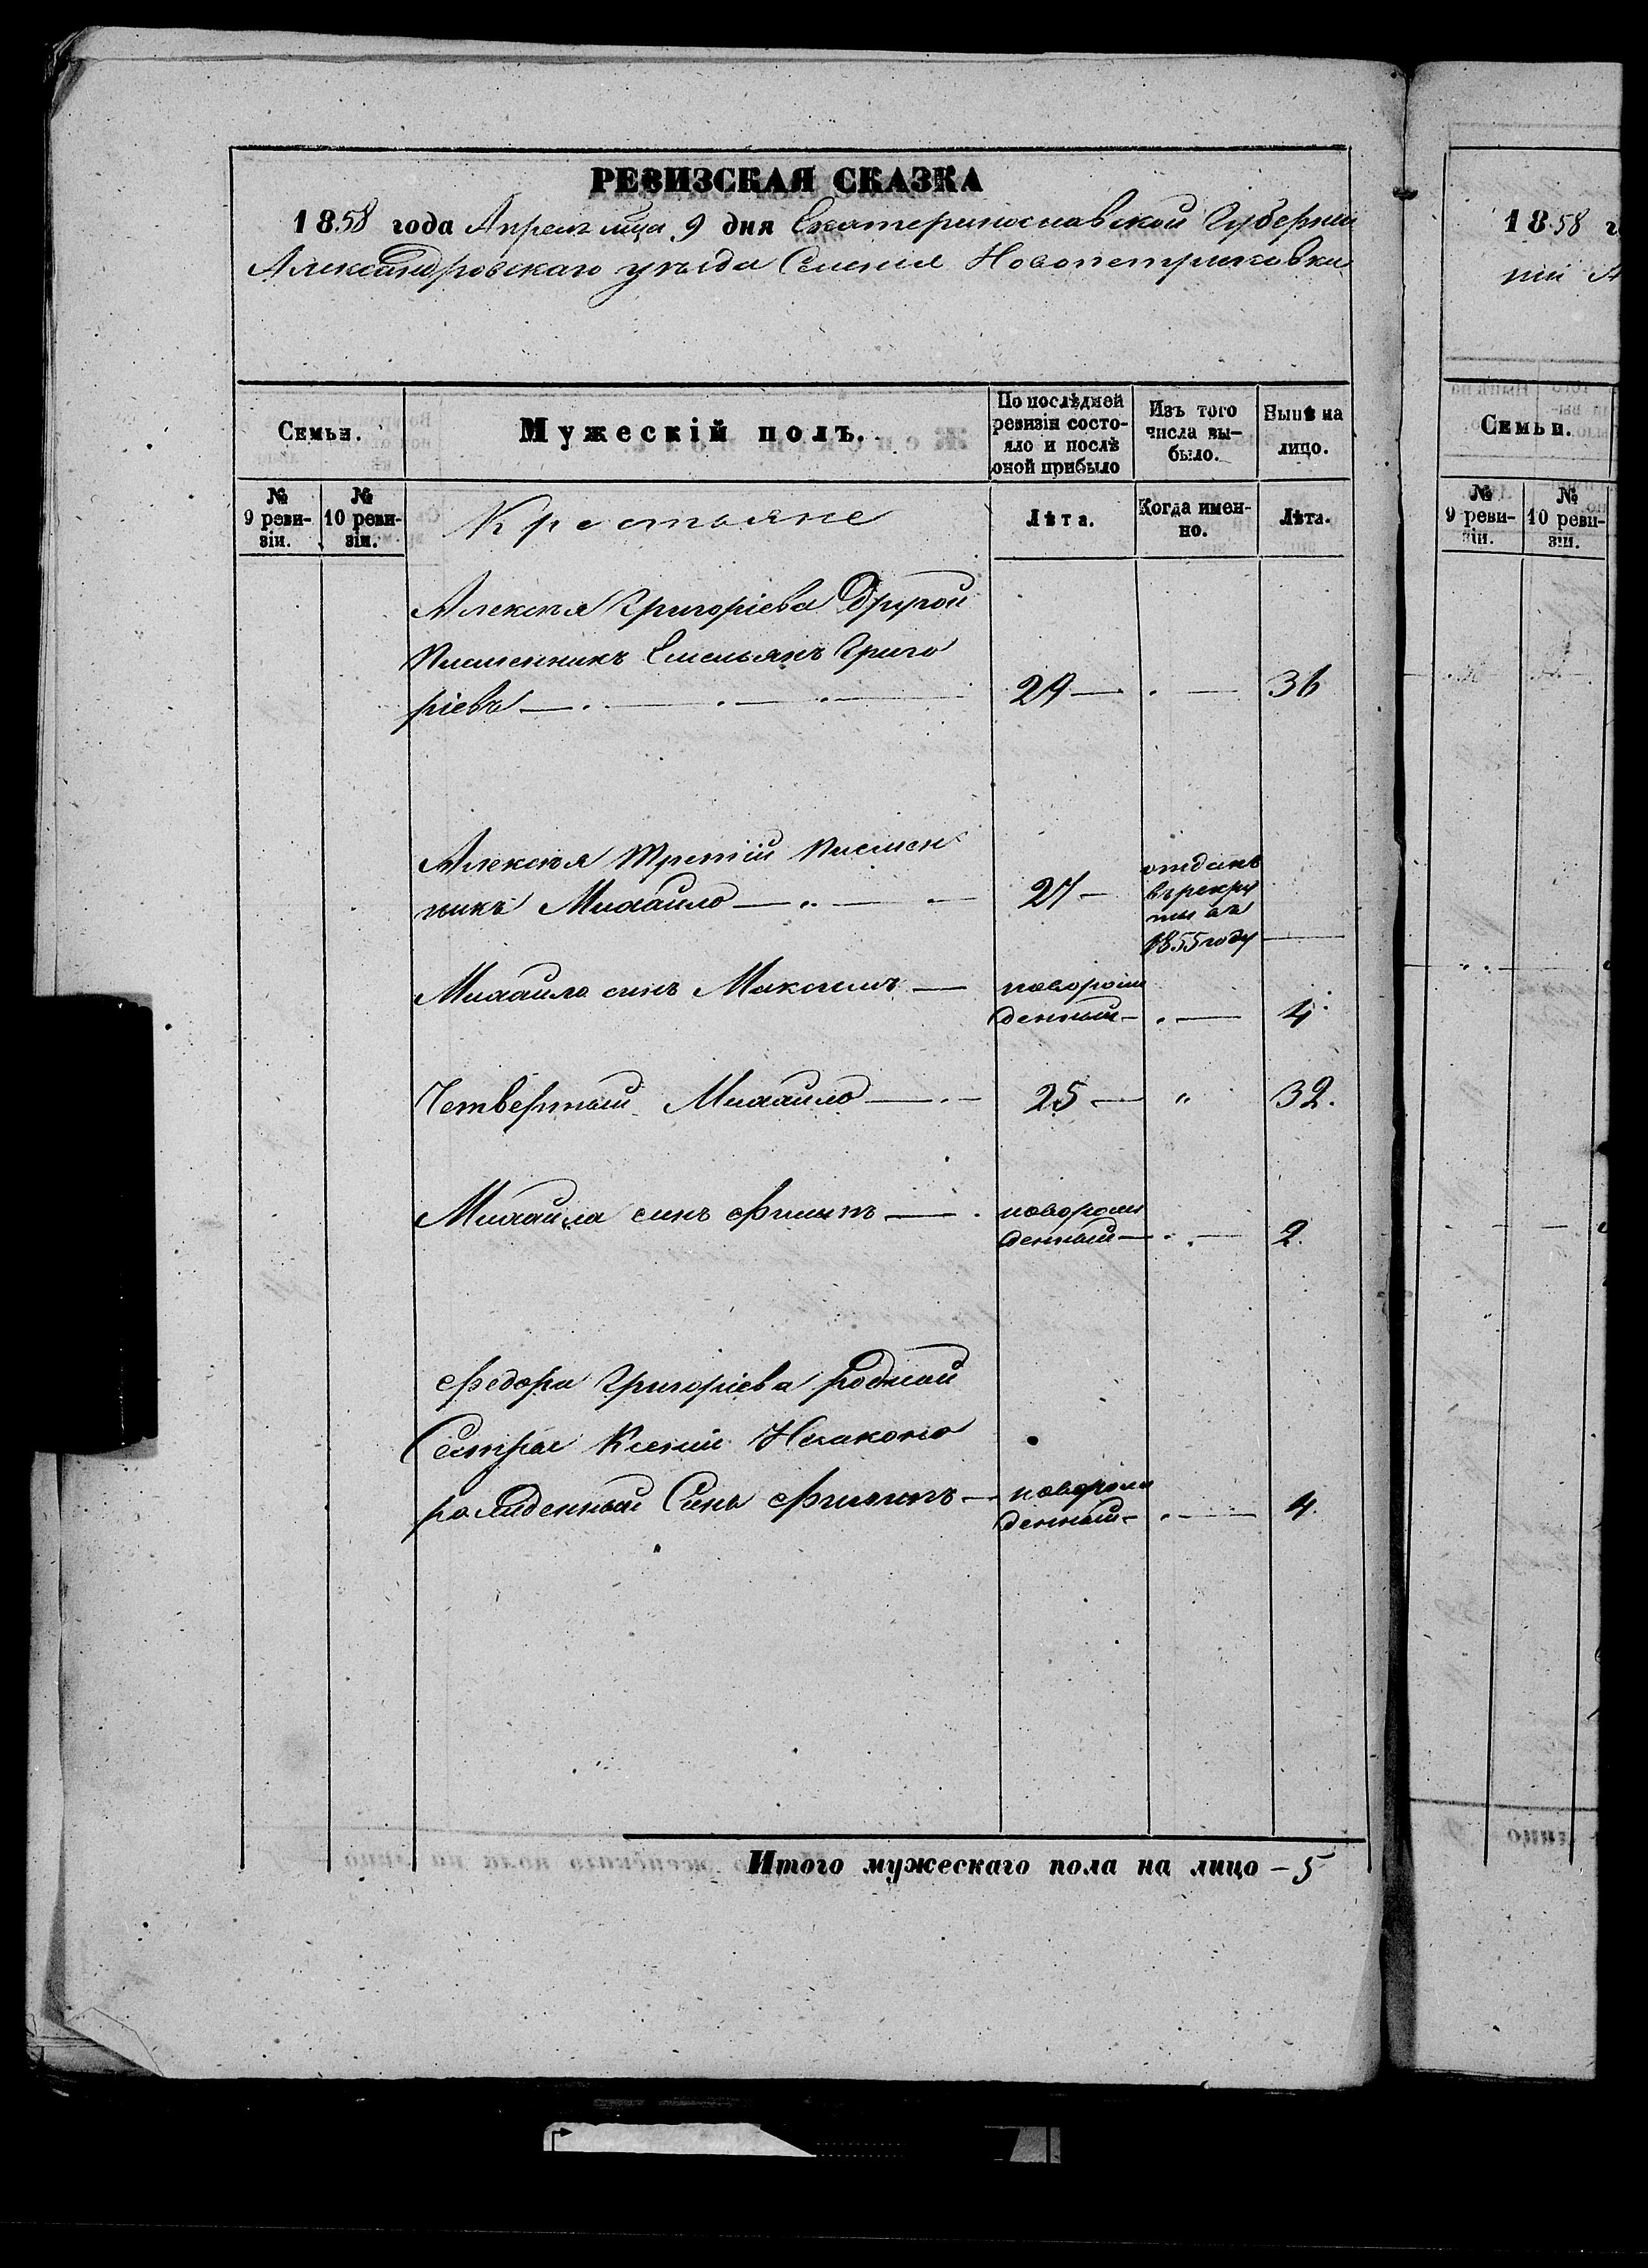 РЕВИЗСКАЯ СКАЗКА
1858 года Апреля мца 9 дня Екатеринославской Губернии
Александровскаго уѣзда Селения Новопетриковки
Семьи.
Мужескій полъ.
По послѣдней
ревизіи состо-
яло и послѣ
оной прибыло
Изъ того
числа вы-
было.
Нынѣ на
лицо.
№
9 реви-
зіи.
№
10 реви-
зіи.
Крестьяне
Лѣта.
Когда имен-
но.
Лѣта.
Алексѣя Григоріева Другой
Племенникъ Емельянъ Григо
ріевъ 29 36
Алексѣя Третій Племен
никъ Михайло 27
отданъ
въ рекру
ты въ
1855 году
Михаила сынъ Максимъ
новорож
денный 4
Четвертый Михайло 25 " 32.
Михайла сынъ Филипъ
новорож
денный 2.
Федора Григоріева родной
Сестры Ксеніи Незаконо
рожденный Сынъ Филипъ
новорож
денный 4.
Итого мужескаго пола на лицо – 5
1858 г
ніи А
Семьи.
№
9 реви-
зіи.
№
10 реви-
зіи.